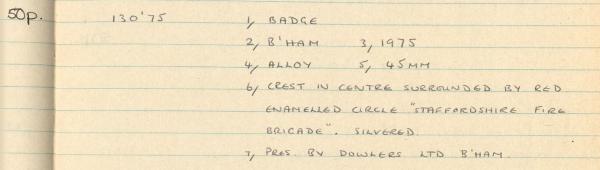 50p. 130'75 1, BADGE
2, B'HAM 3, 1975
4, ALLOY 5, 45MM
6, CREST IN CENTRE SURROUNDED BY RED
ENAMELLED CIRCLE "STAFFORDSHIRE FIRE
BRIGADE". SILVERED.
7, PRES. BY DOWLERS LTD B'HAM.